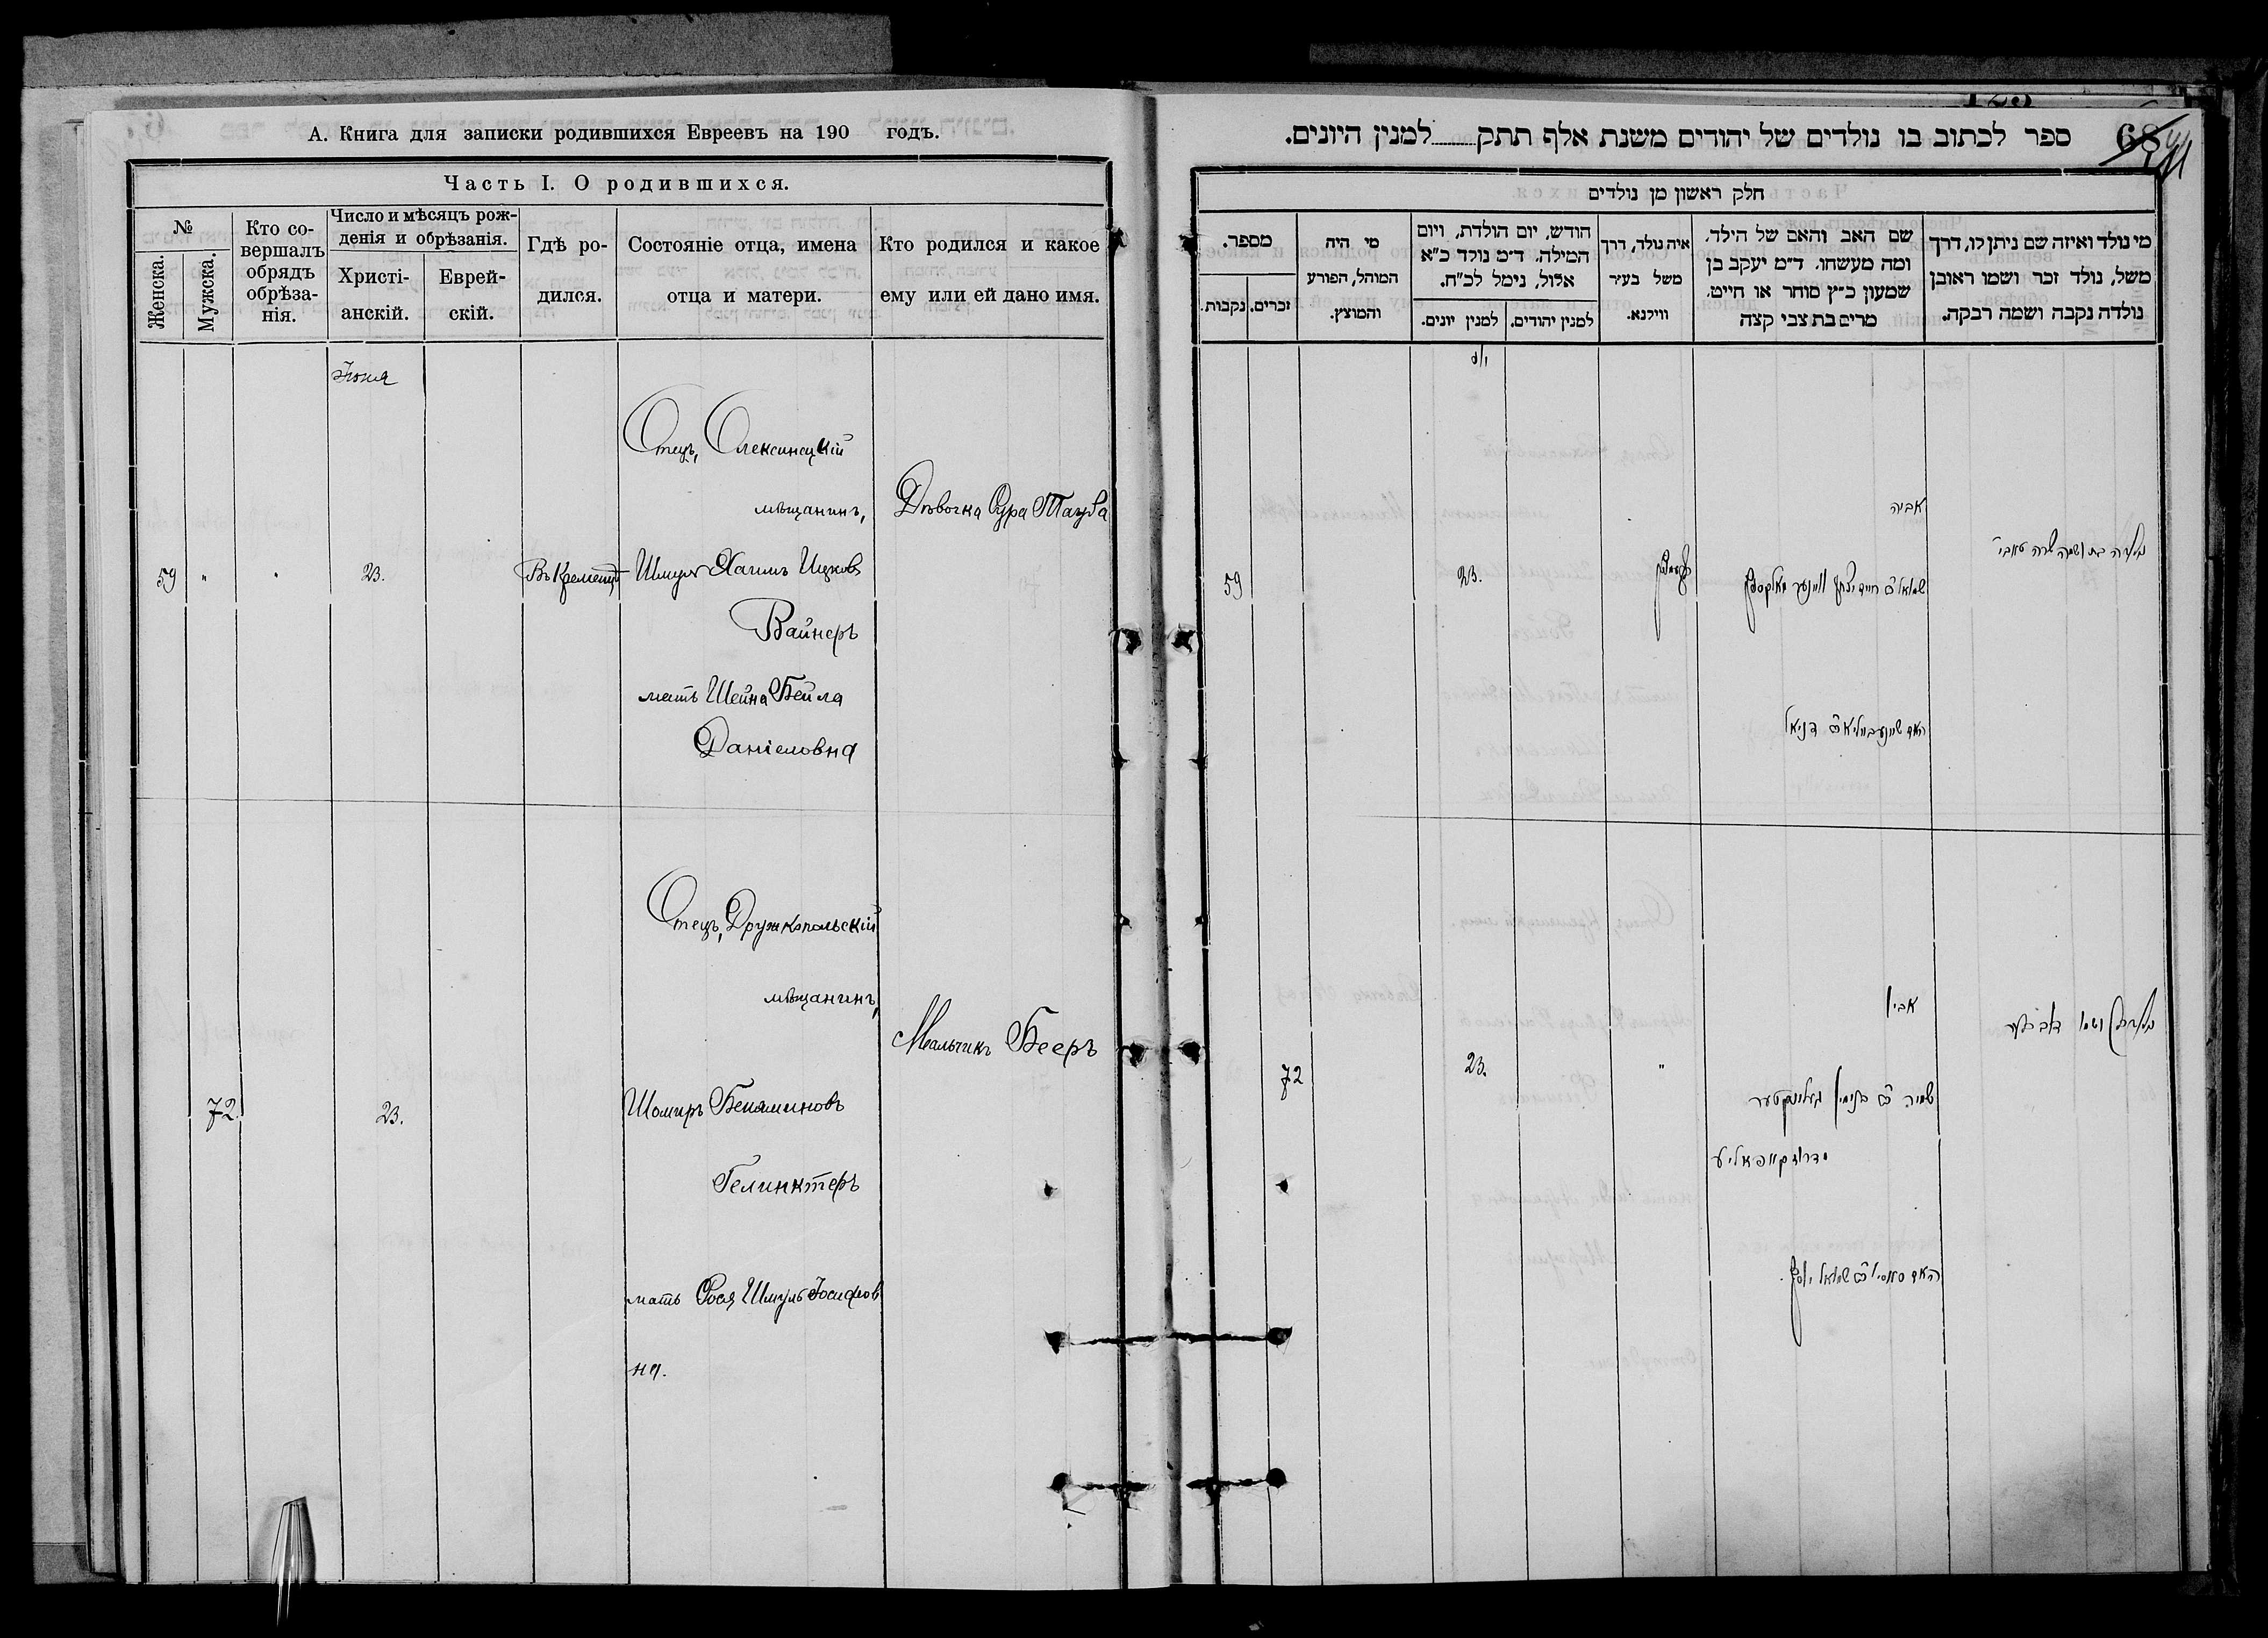 А. Книга для записки родившихся Евреевъ на 190 годъ.
Часть I. О родившихся.
№
Женска.
Мужска.
Кто со-
вершалъ
обрядъ
обрѣза-
нія.
Число и мѣсяцъ рож-
денія и обрѣзанія.
Христі-
анскій.
Еврей-
скій.
Гдѣ ро-
дился.
Состояніе отца, имена
отца и матери.
Кто родился и какое
ему или ей дано имя.
Іюня
59 " " 23. Въ Кременцѣ
Отецъ, Олексинецкій
мѣщанинъ,
Шмуль Хаимъ Ицковъ
Вайнеръ
мать Шейна Бейла
Даніеловна
Дѣвочка Сура Тауба
72. 23.
Отецъ, Дружкопольскій
мѣщанинъ,
Шомиръ Беняминовъ
Гелинктеръ
мать Рося Шмуль Іосифов
на.
Мальчикъ Бееръ
ספר לכתוב בו נולדים של יהודים משנת אלף תתק למנין היונים.
68
חלק ראשון מן נולדים
מי נולד ואיזה שם ניתן לו, דרך
משל, נולד זכר ושמו ראובן
נולדה נקבה ושמה רבקה.
שם האב והאם של הילד.
ומה מעשהו. ד״מ יעקב בן
שמעון כ״ץ סוחר או חייט.
מרים בת צבי קצה
איה נולד, דרך
משל בעיר
ווילנא.
חודש, יום הולדת, ויום
המילה. ד״מ נולד כ״א
אלול, נימל לכ״ח.
למנין יהודים.
למנין יונים.
מי היה
המוהל, הפורע
והמוצץ.
מספר.
זכרים.
נקבות.
אביה
59 23.
האם שיינע בייליא דניאל
אביו
72 23. "